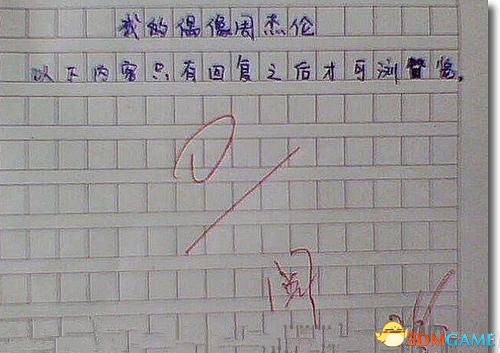 我的偶像周杰伦
以下内容只有回复之后才可浏览。
阅
3DMGAME